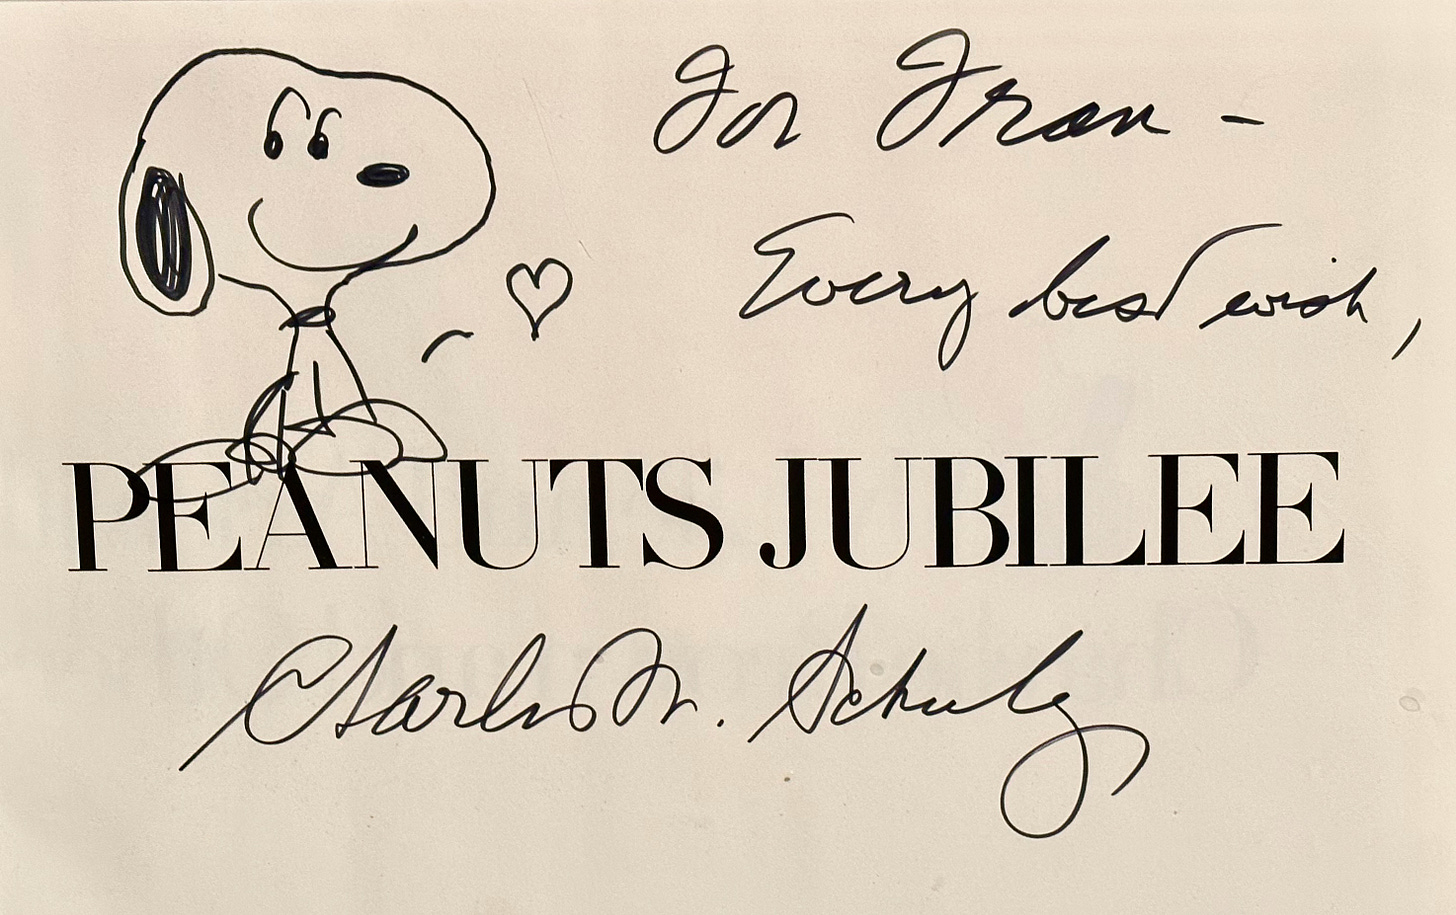 For Fran -
Every best wish,
PEANUTS JUBILEE
Charles M. Schulz